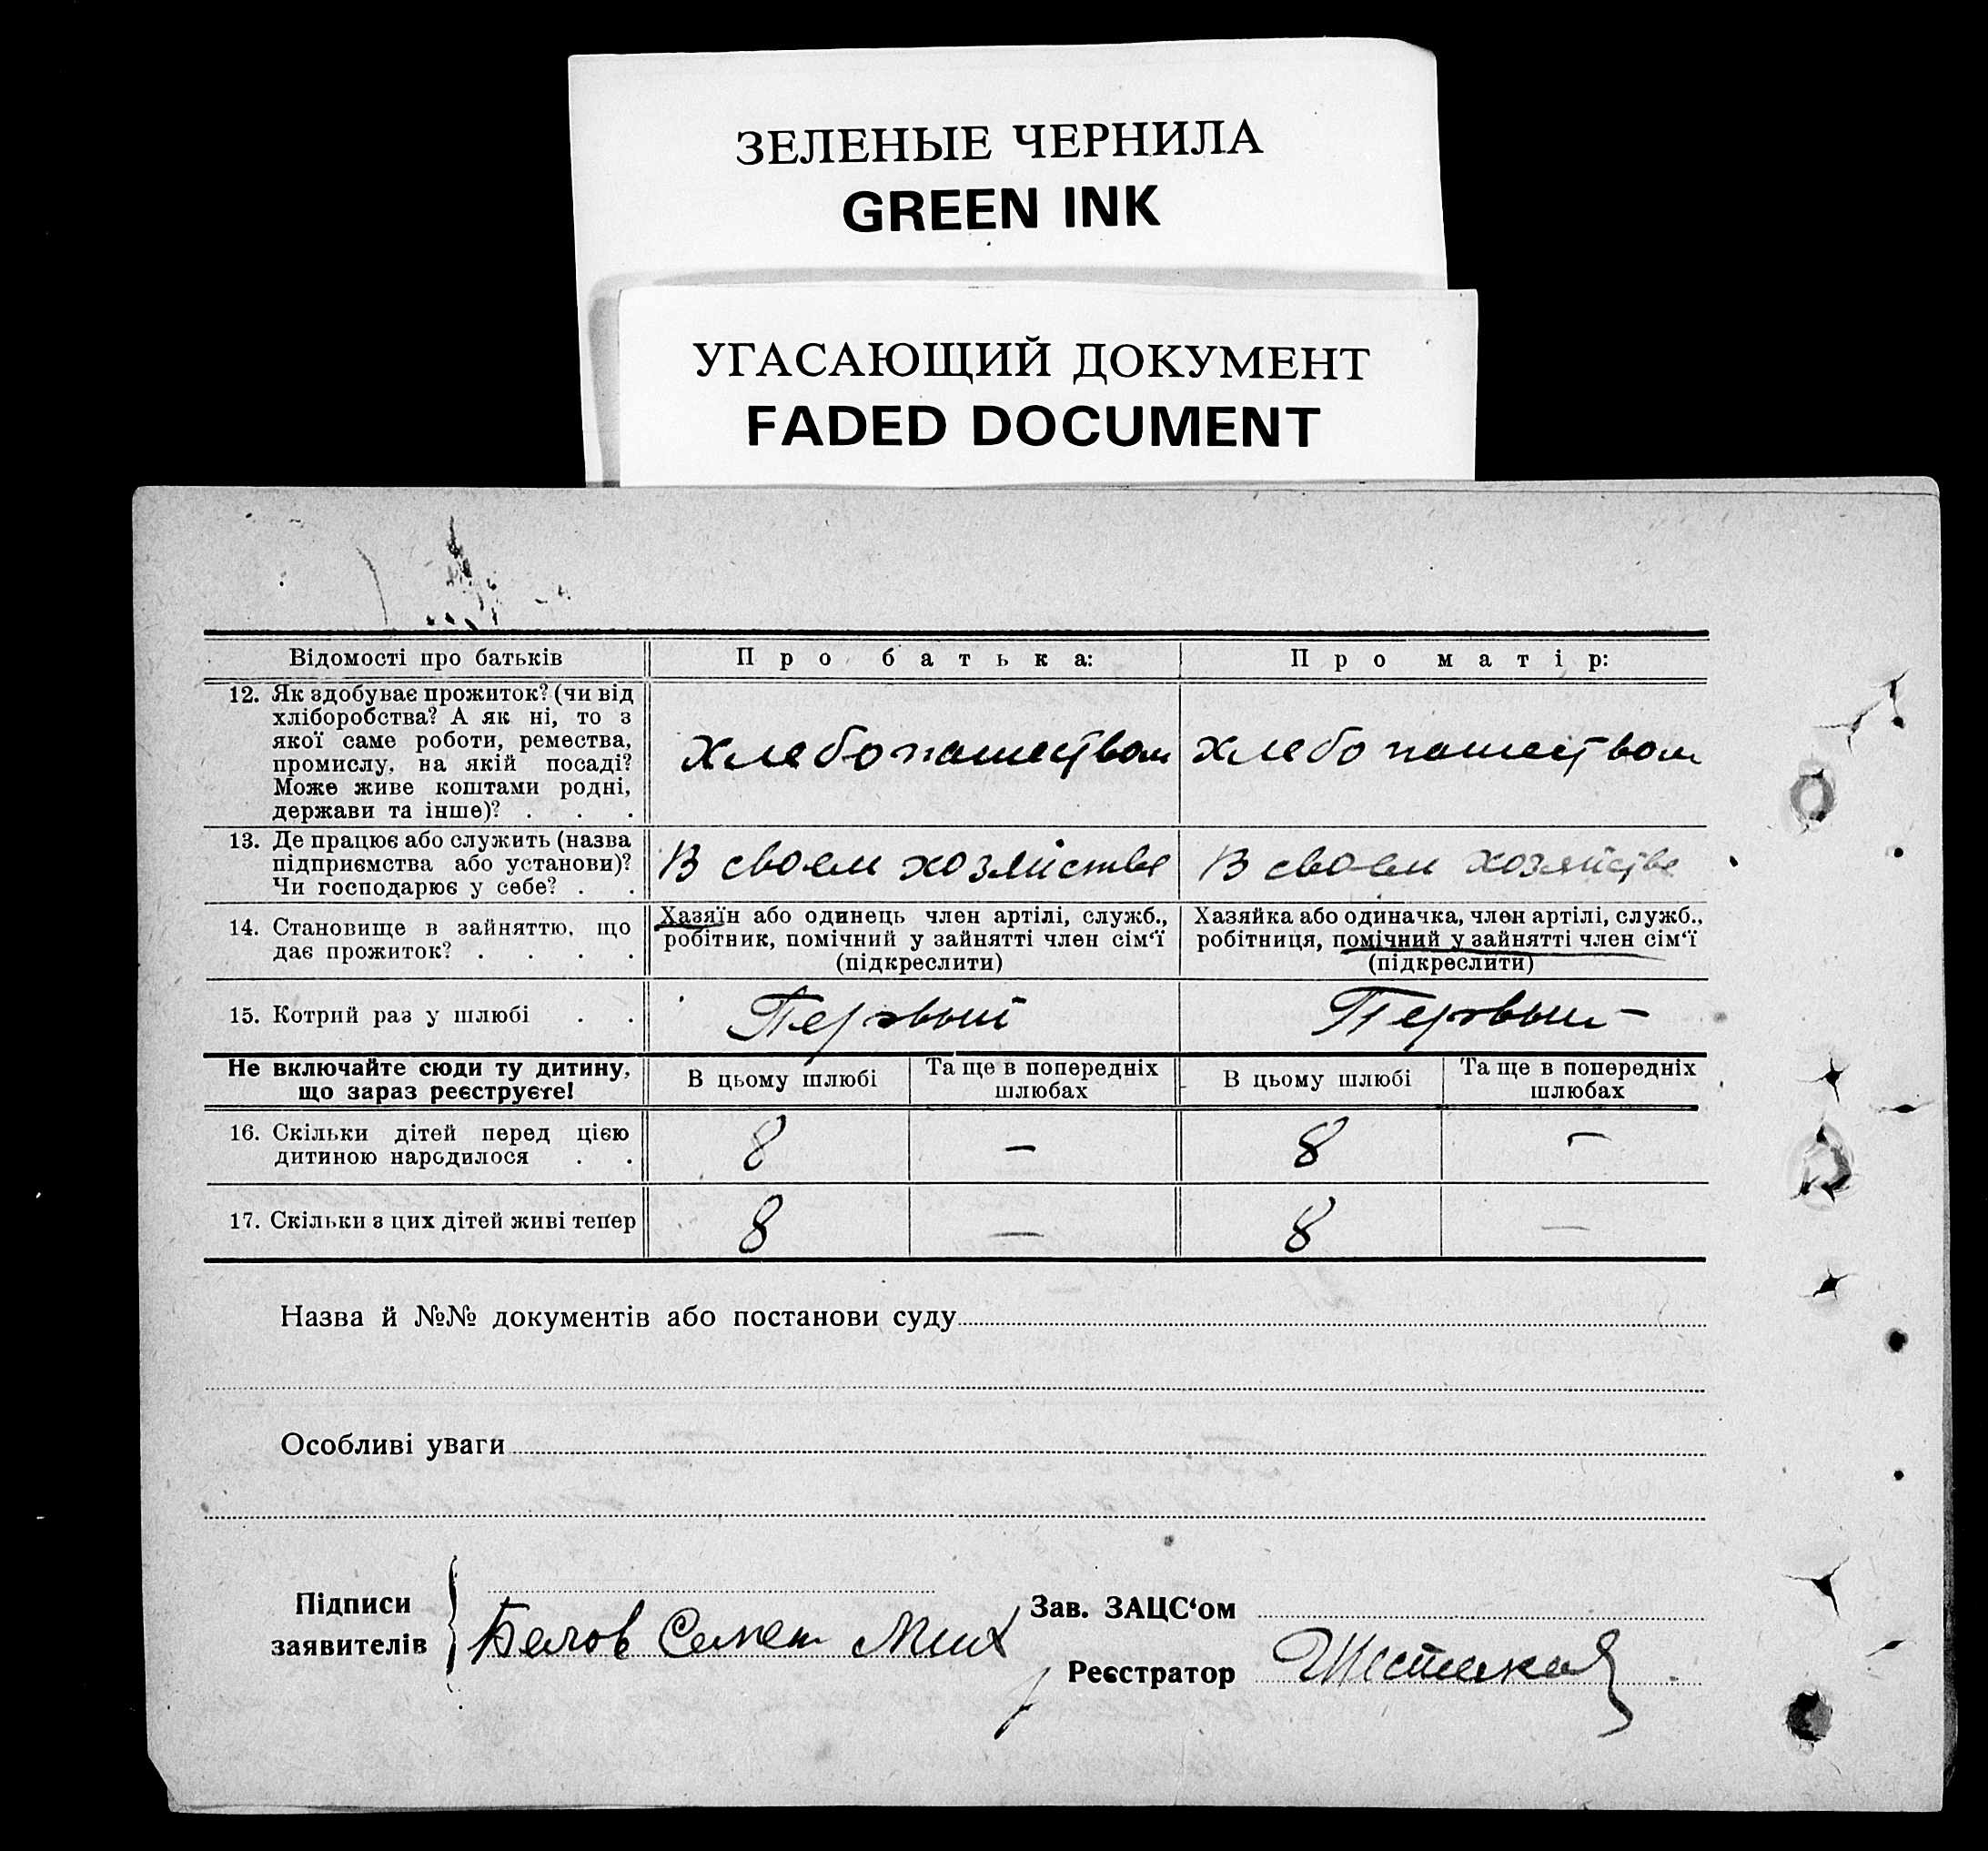 ЗЕЛЕНЫЕ ЧЕРНИЛА
GREEN INK
УГАСАЮЩИЙ ДОКУМЕНТ
FADED DOCUMENT
Відомості про батьків
Про батька:
Про матір:
12. Як здобуває прожиток? (чи від
хліборобства? А як ні, то з
якої саме роботи, ремества,
промислу, на якій посаді?
Може живе коштами родні,
держави та інше)? . . .
Хлебопашеством
Хлебопашеством
13. Де працює або служить (назва
підприємства або установи)?
Чи господарює у себе? . .
В своем хозяйстве
В своем хозяйстве
14. Становище в зайняттю, що
дає прожиток? . . . .
Хазяїн або одинець член артілі, служб.,
робітник, помічний у зайнятті член сім‘ї
(підкреслити)
Хазяйка або одиначка, член артілі, служб.,
робітниця, помічний у зайнятті член сім‘ї
(підкреслити)
15. Котрий раз у шлюбі . .
Первый
Первый
Не включайте сюди ту дитину,
що зараз реєструєте!
В цьому шлюбі
Та ще в попередніх
шлюбах
В цьому шлюбі
Та ще в попередніх
шлюбах
16. Скільки дітей перед цією
дитиною народилося . .
8 — 8 —
17. Скільки з цих дітей живі тепер
8 — 8 —
Назва й №№ документів або постанови суду
Особливі уваги
Підписи
заявителів
Белов Семен Мих
Зав. ЗАЦС‘ом
Реєстратор